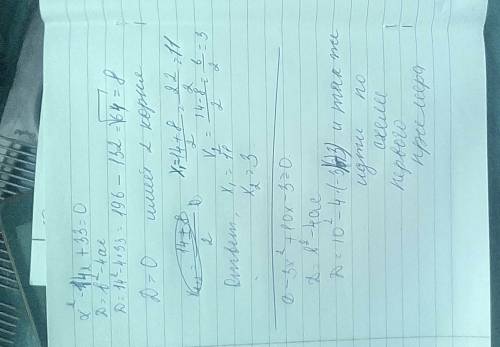 x² - 14x + 33 = 0
D = b² - 4ac
D = 14² - 4·33 = 196 - 132 = √64 = 8
D = 0 имеет 2 корня
14 ± 8
2
x₁ = 14+8/2 = 22/2 = 11
x₂ = 14-8/2 = 6/2 = 3
Ответ: x₁ = 11
x₂ = 3
- 3x² + 10x - 3 = 0
D = b² - 4ac
D = 10² - 4·(-3)·(-3) и так же
идти по
схеме
первого
примера